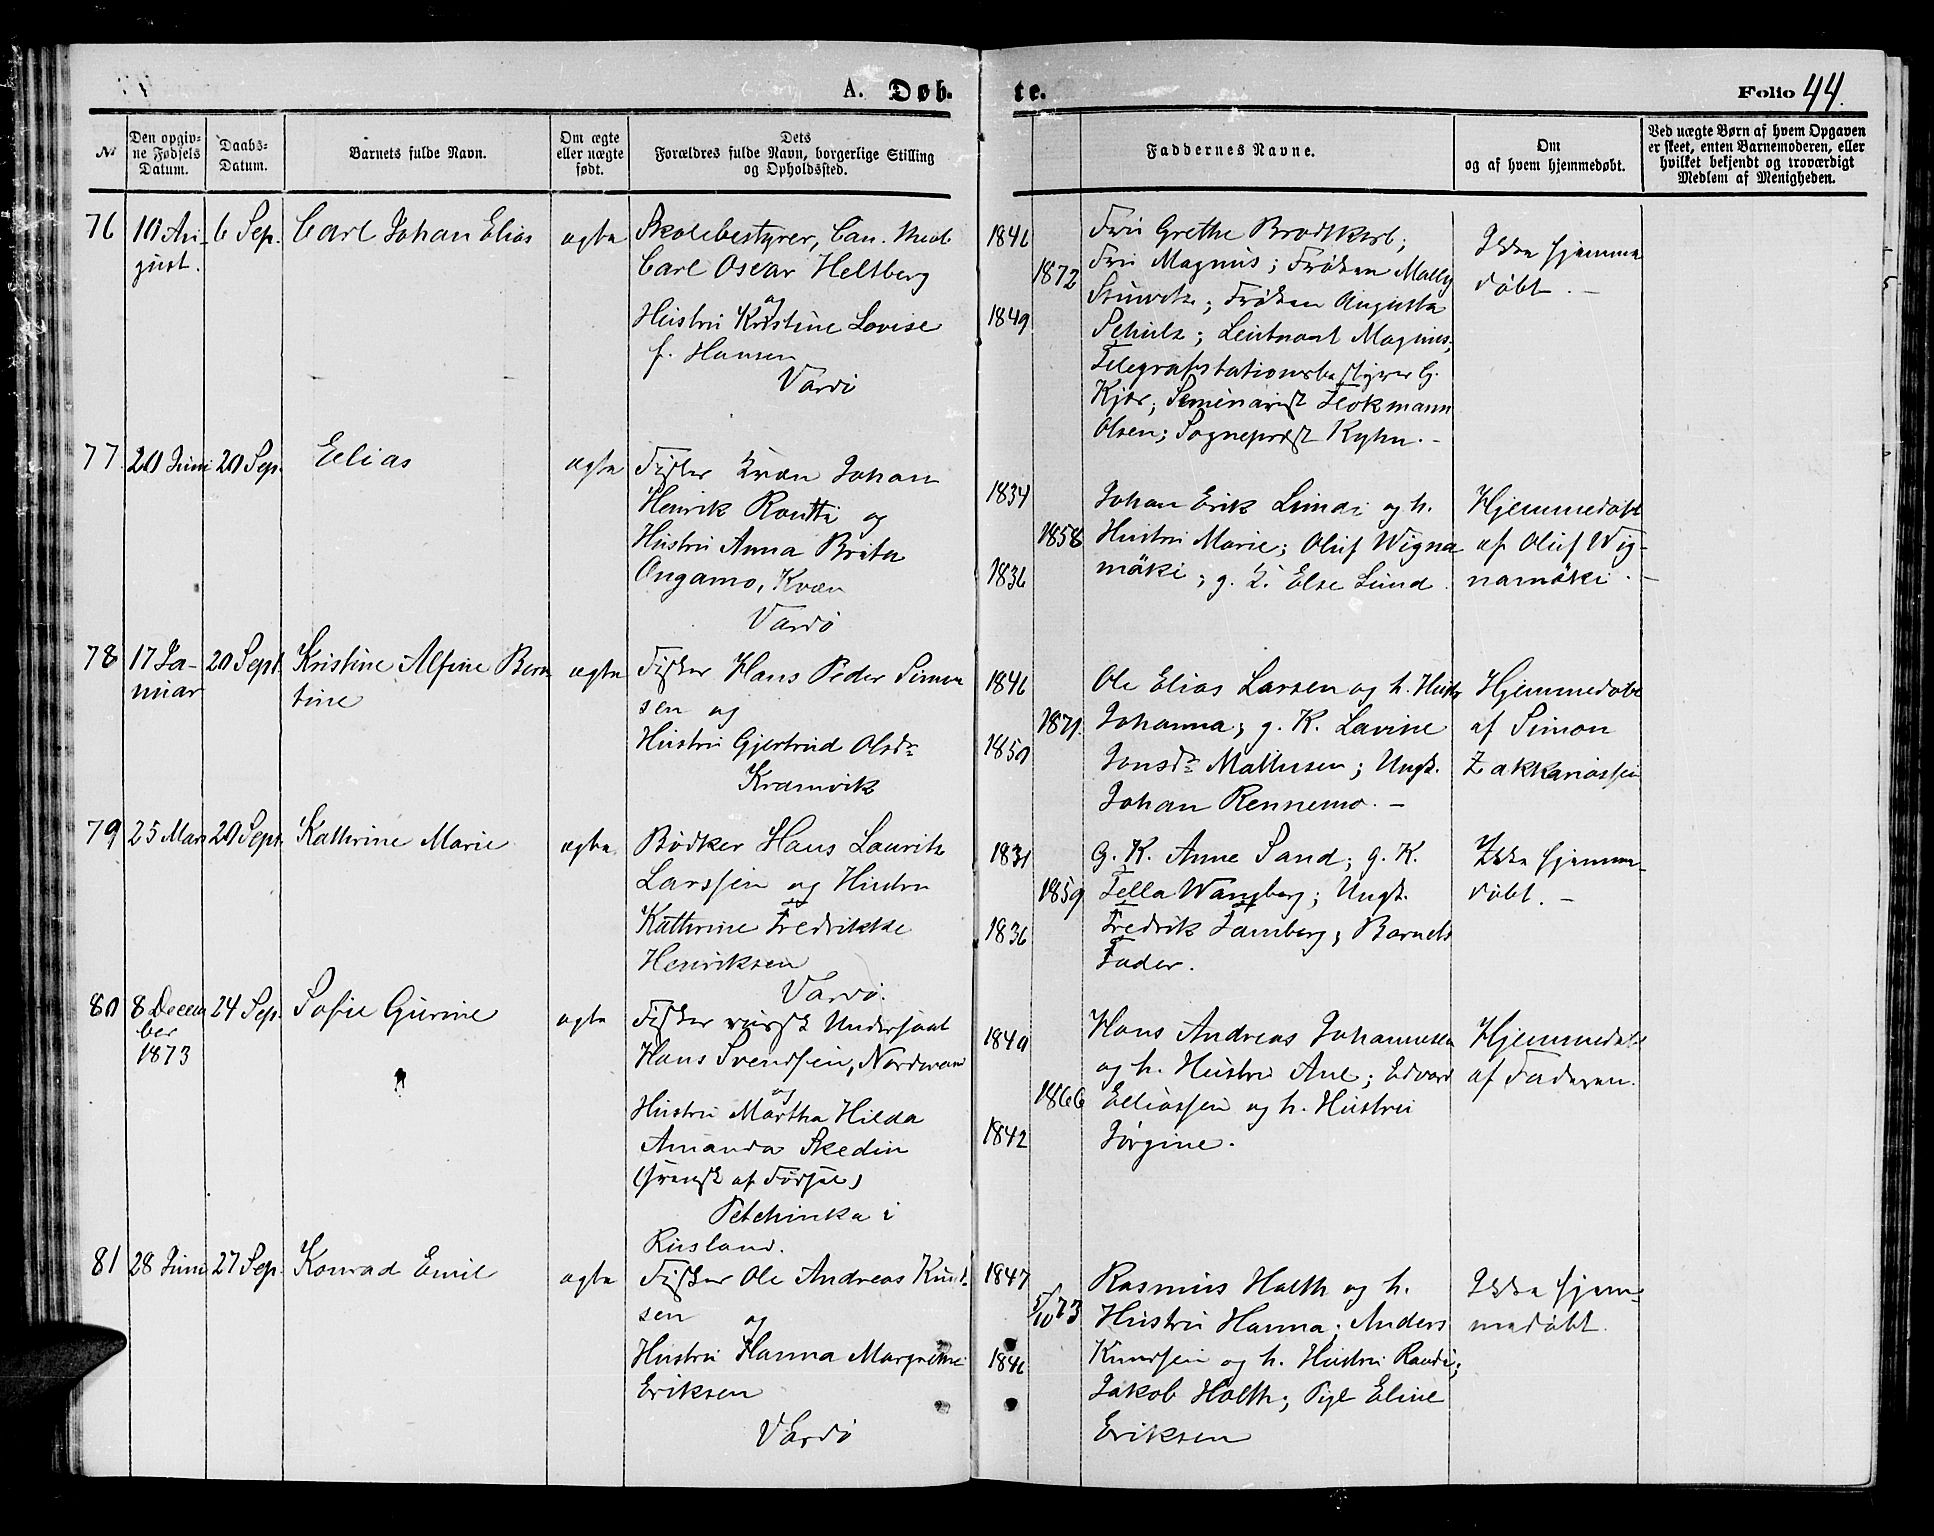 A. Døb.
te.
Folio 44.
№
Den opgiv-
ne Fødsels
Datum.
Daabs-
Datum.
Barnets fulde Navn.
Om ægte
eller uægte
født.
Dets
Forældres fulde Navn, borgerlige Stilling
og Opholdssted.
Faddernes Navne.
Om
og af hvem hjemmedøbt.
Ved uægte Børn af hvem Opgaven
er skeet, enten Barnemoderen, eller
hvilket bekjendt og troværdigt
Medlem af Menigheden.
76
10 Au-
gust.
6 Sep.
Carl Johan Elias
ægte
Skolebestyrer, Can. Med
Carl Oscar Heltberg
og
Hustru Kristine Lovise
f. Hansen
Vardø
1846
1872
1849
Fru Grethe Brodtkorb;
Fru Magnus; Frøken Mally
Stuwitz; Frøken Augusta
Schulz; Leutnant Magnus;
Telegrafstationsbestyrer G.
Kjær; Seminarist Flokmann
Olsen; Sognepræst Kyhn. -
Ikke hjemme
døbt. -
77
20 Juni
20 Sep.
Elias
ægte
Fisker Kvæn Johan
Henrik Routti og
Hustru Anna Brita
Ongamo, Kvæn
Vardø
1834
1858
1836
Johan Erik Lundi og h.
Hustru Marie; Oluf Wigna
mäki; g. K. Else Lund.
Hjemmedøbt
af Oluf Wig-
namäki. -
78
17 Ja-
nuar
20 Sept.
Kristine Alfine Bern
tine
ægte
Fisker Hans Peder Simon
sen og
Hustru Gjertrud Olsdr
Kramvik
1846
1871.
1850
Ole Elias Larsen og h. Hustr
Johanna; g. K. Lavine
Jonsdr Mathisen; Ungk.
Johan Rennemo. -
Hjemmedøbt
af Simon
Zakkariassen
79
25 Mars
20 Sept.
Kathrine Marie
ægte
Bødker Hans Lauritz
Larssen og Hustru
Kathrine Fredrikke
Henriksen
Vardø.
1831
1859
1836
G. K. Anne Sand; g. K.
Tella Wangberg; Ungk.
Fredrik Jamberg; Barnets
Fader.
Ikke hjemme-
døbt. -
80
8 Decem
ber
1873
24 Sep.
Sofie Gurine
ægte
Fisker russisk Undersaat
Hans Svendsen, Nordmand
og
Hustru Martha Hilda
Amanda Skedin
(svensk af Fødsel)
Petchinka i
Rusland.
1840
1866
1842
Hans Andreas Johannesen
og h. Hustru Ane; Edvard
Eliassen og h. Hustru
Jørgine.
Hjemmedøbt
af Faderen.
81
28 Juni
27 Sep.
Konrad Emil
ægte
Fisker Ole Andreas Knud-
sen og
Hustru Hanna Margrethe
Eriksen
Vardø
1847
5/10 73
1846
Rasmus Holth og h.
Hustru Hanna; Anders
Knudsen og h. Hustru Randi;
Jakob Holth; Pige Eline
Eriksen
Ikke hjem-
medøbt.